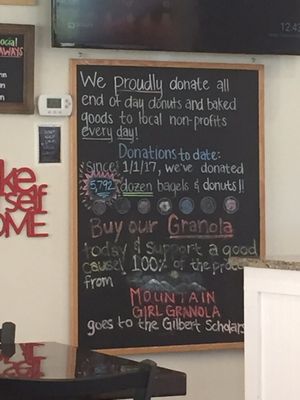 We proudly donate all
end of day donuts and baked
goods to local non-profits
every day!
Donations to date:
since 1/1/17, we've donated
5,792 dozen bagels & donuts!!
Buy our Granola
today & support a good
cause! 100% of the proce
from
MOUNTAIN
GIRL GRANOLA
goes to the Gilbert Scholars
ke
rself
OME
cial
AWAYS
12:43